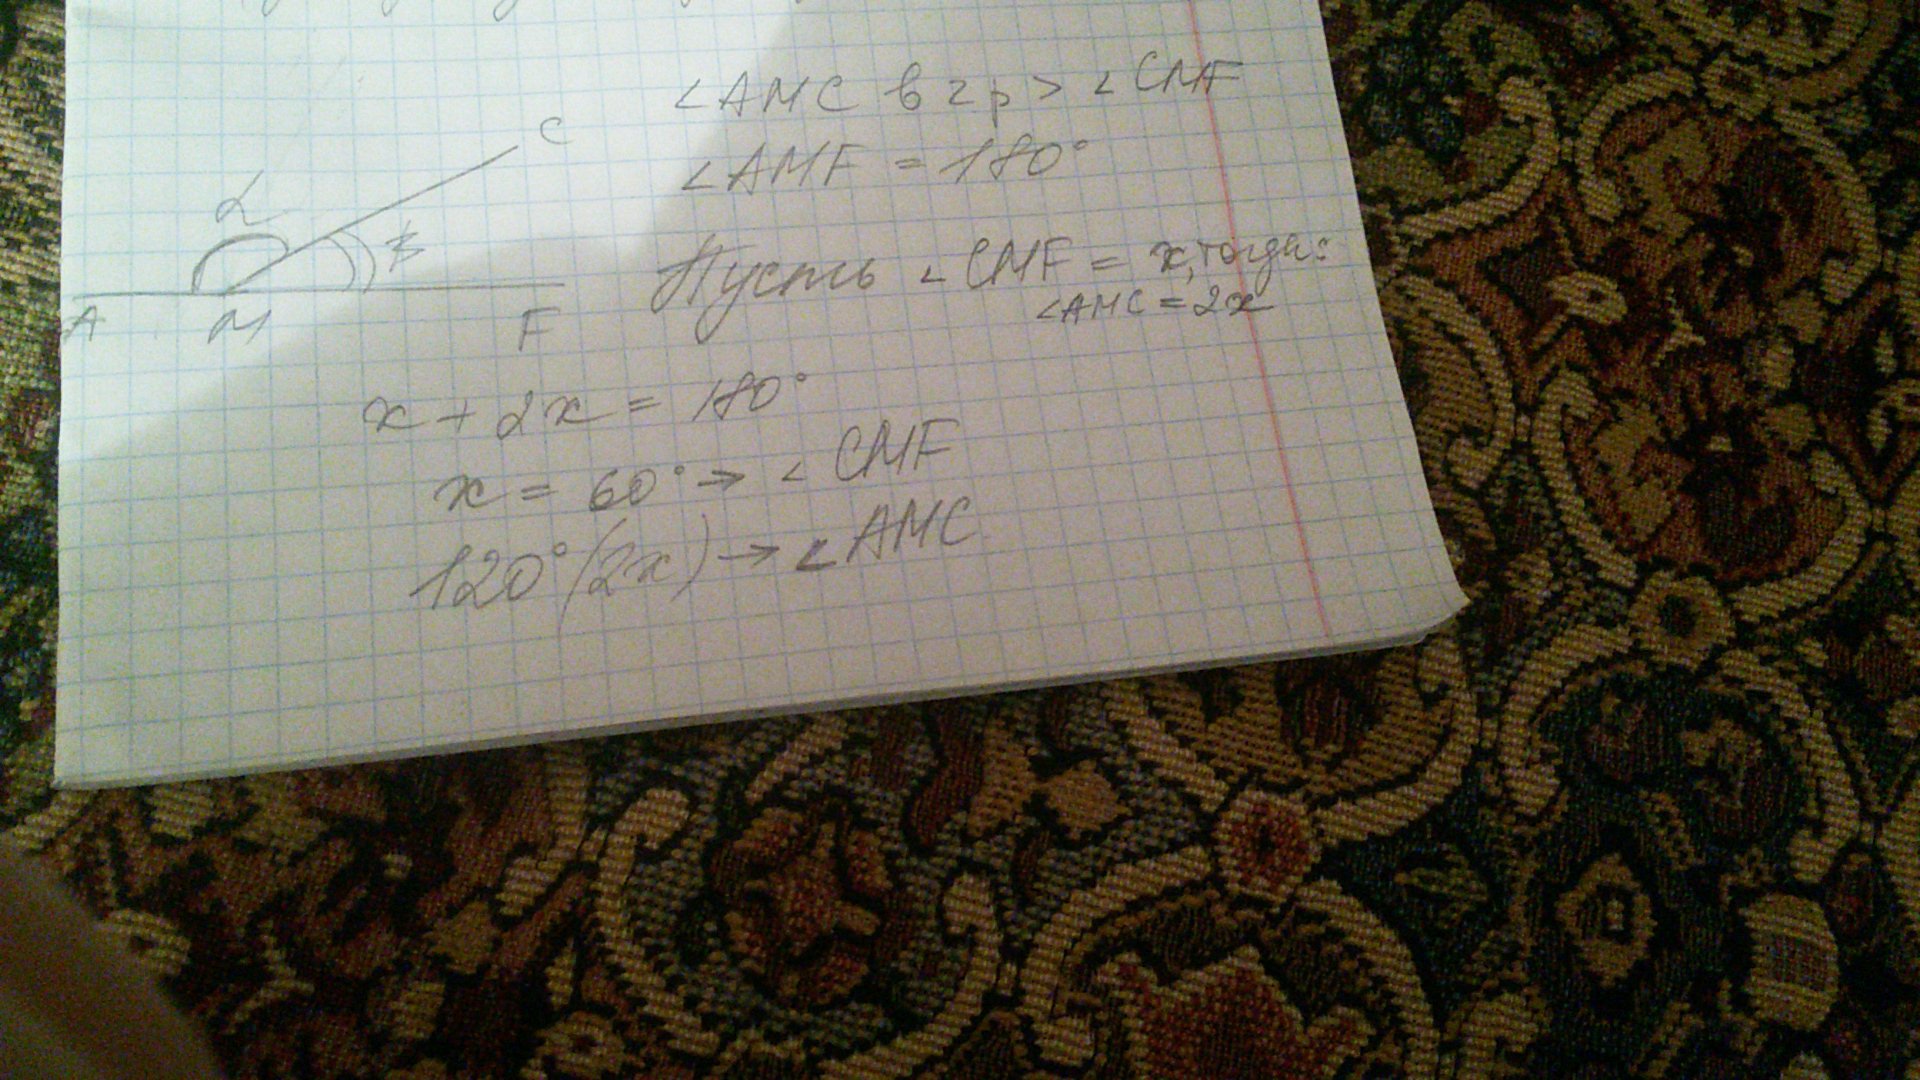 ∠AMC в 2 р > ∠CMF
∠AMF = 180°
C
α
β
A
M
F
Пусть ∠CMF = x, тогда:
∠AMC = 2x
x + 2x = 180°
x = 60° → ∠CMF
120° (2x) → ∠AMC